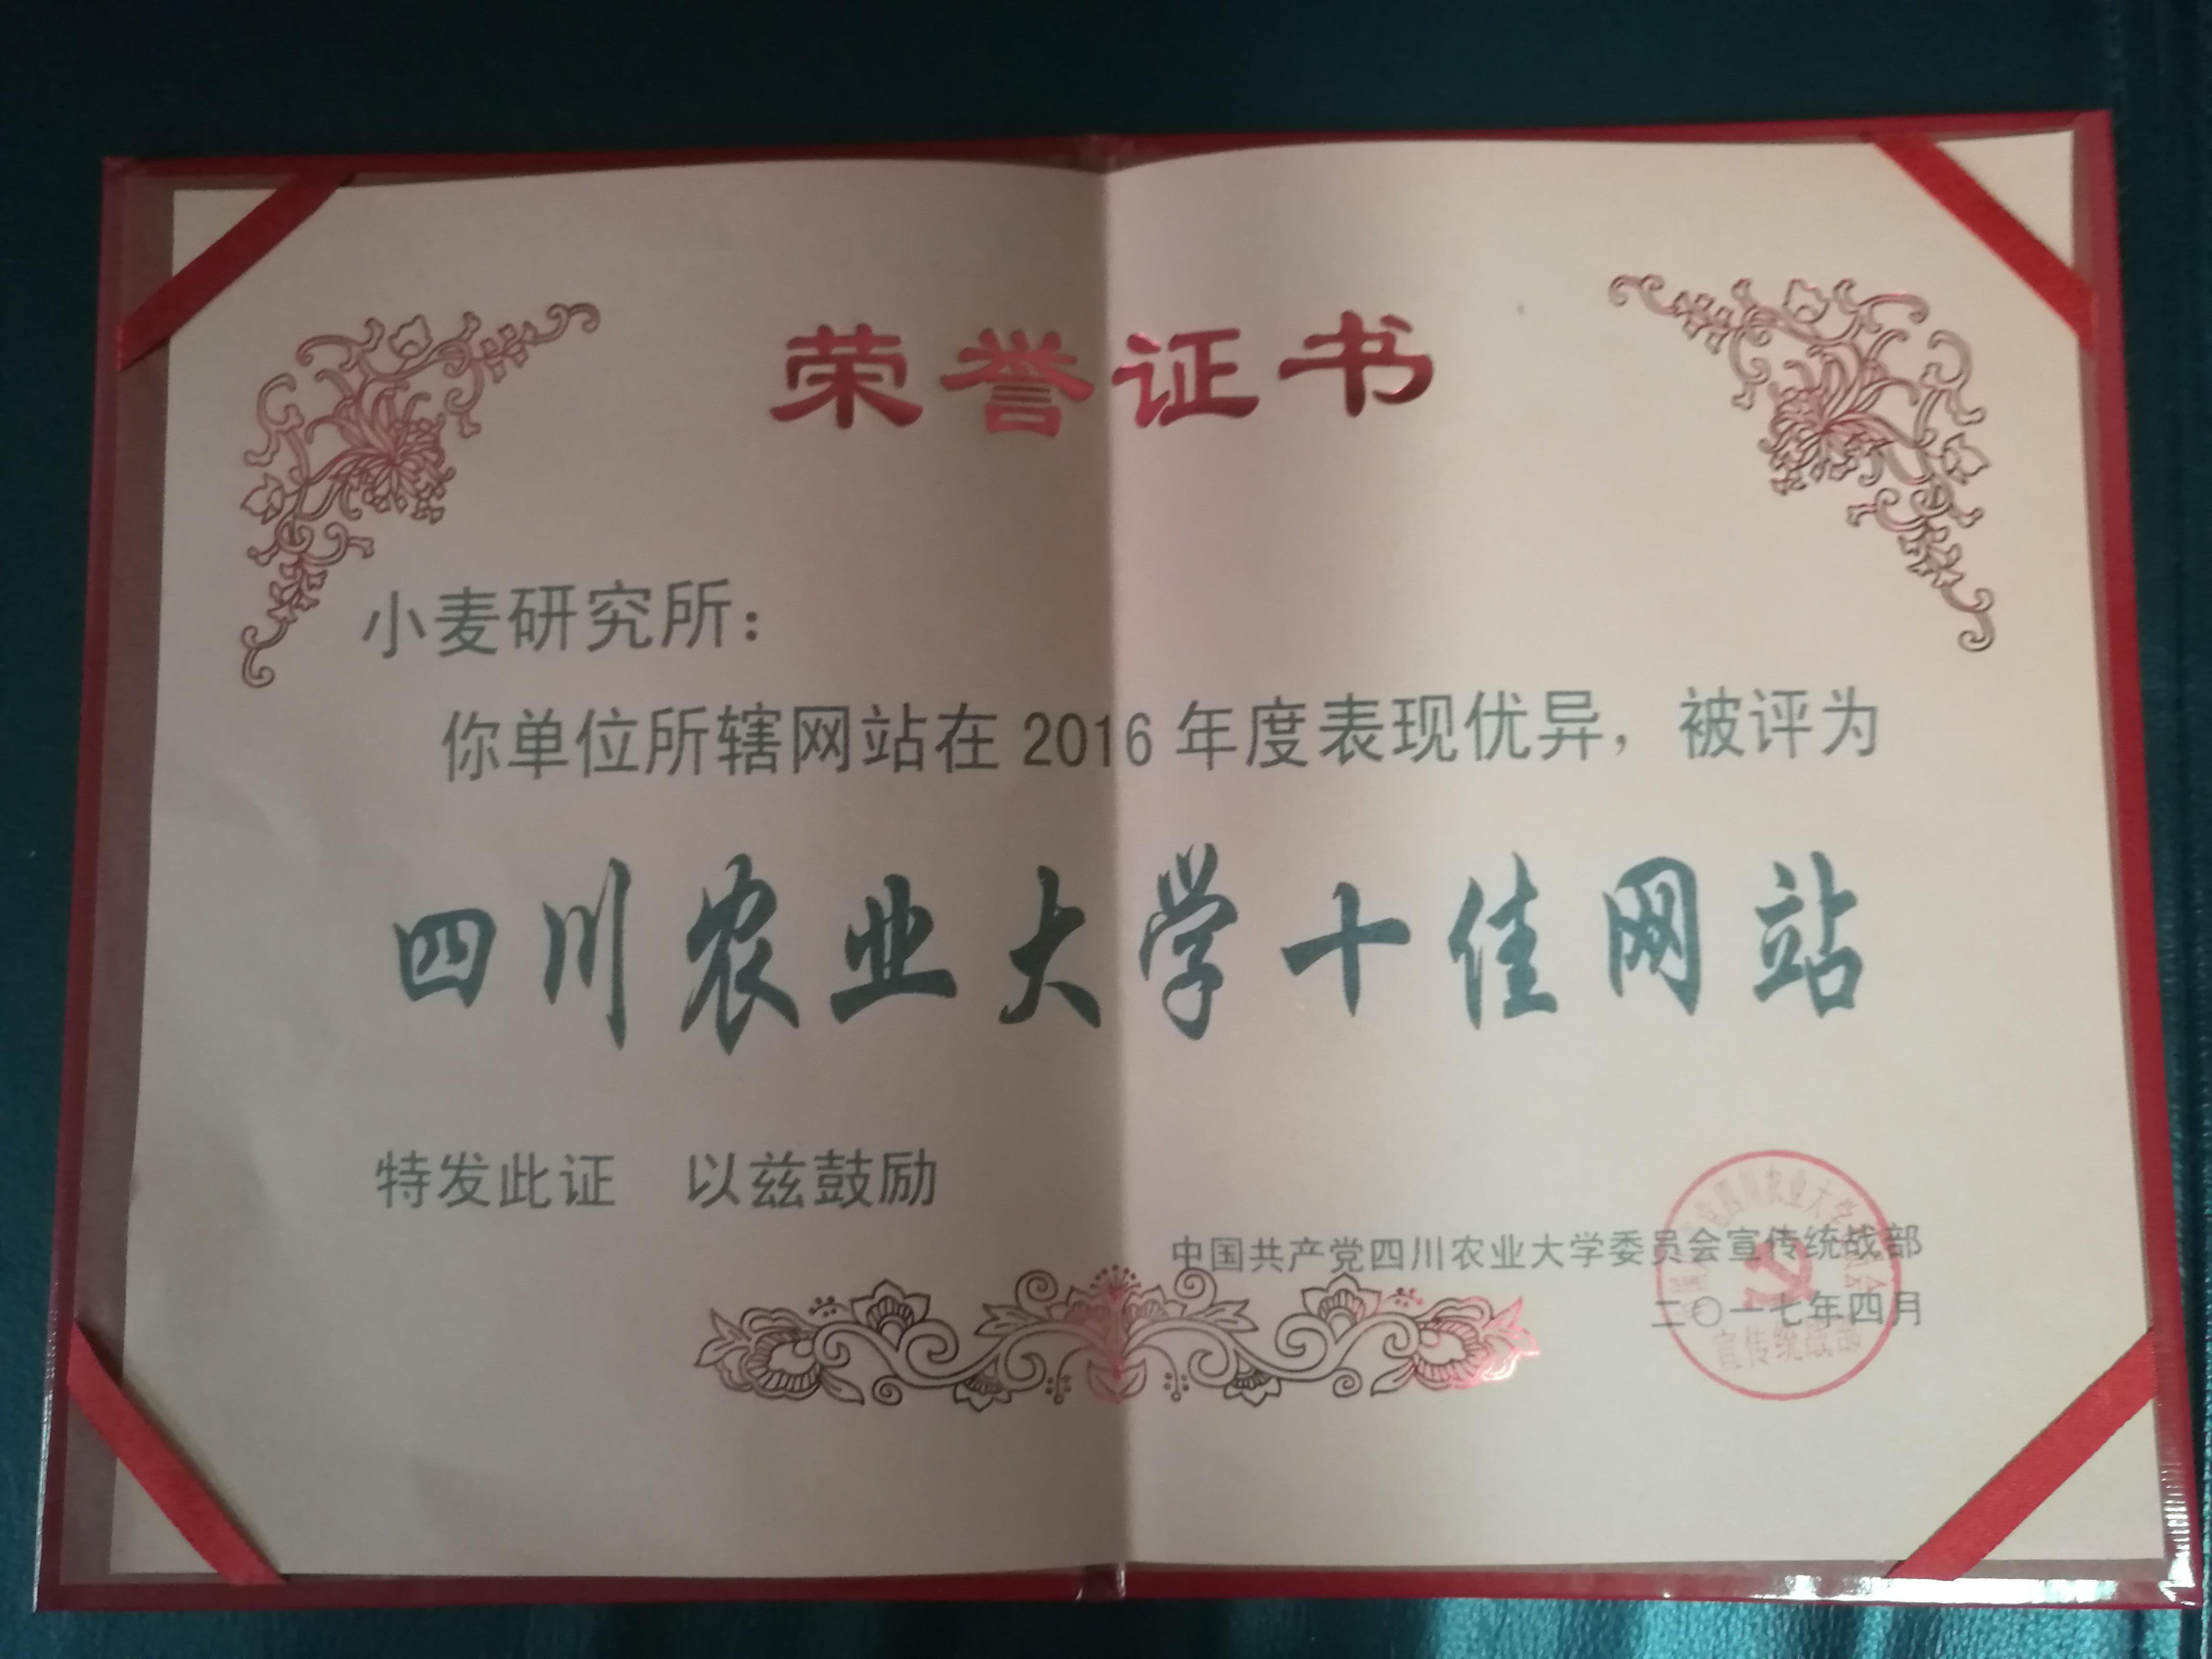 荣誉证书
小麦研究所：
你单位所辖网站在 2016 年度表现优异，被评为
四川农业大学十佳网站
特发此证　以兹鼓励
中国共产党四川农业大学委员会宣传统战部
二〇一七年四月
宣传统战部